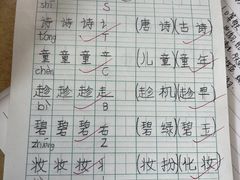 shī S
诗 诗 诗 讠 (唐诗)(古诗)
tóng T
童 童 童 立 (儿童)(童年)
chèn C
趁 趁 趁 走 (趁机)(趁早)
bì B
碧 碧 碧 石 (碧绿)(碧玉)
zhuāng Z
妆 妆 妆 丬 (妆扮)(化妆)